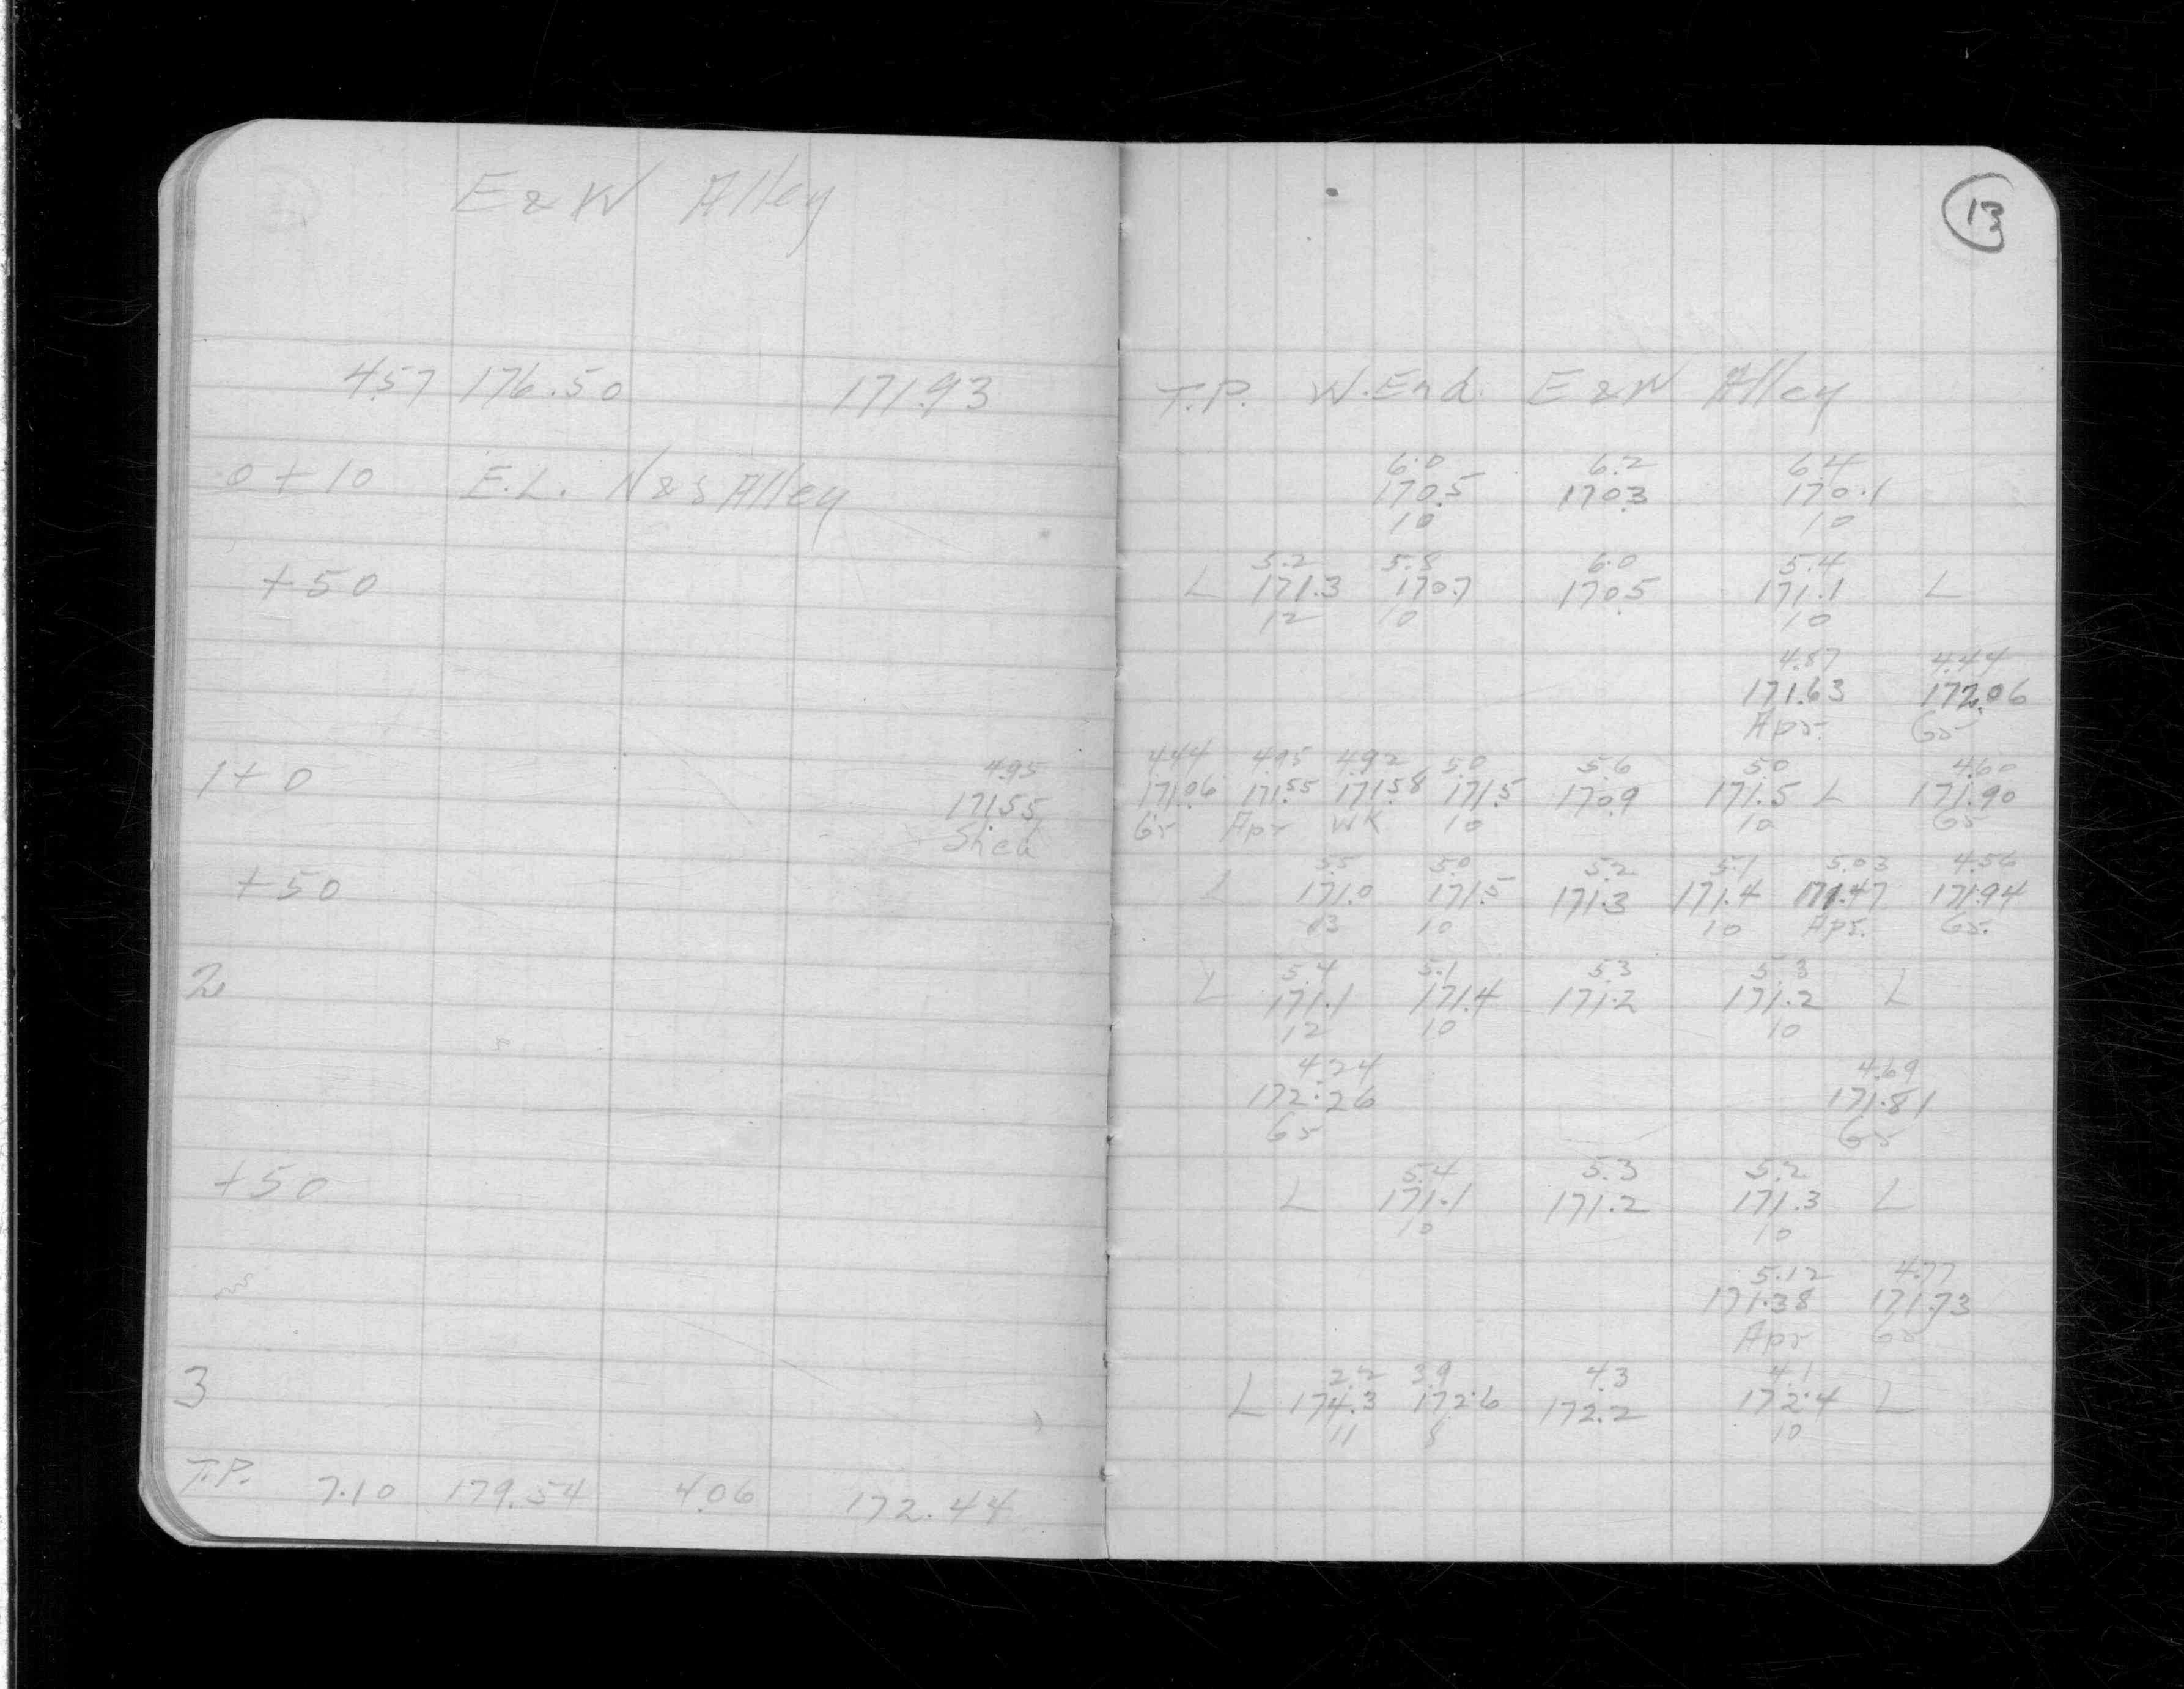 E & W Alley
4.57 176.50 171.93
0 + 10 E.L. N & S Alley
+50
4.95
1 + 0 171.55
Shed
+50
2
+50
3
T.P. 7.10 179.54 4.06 172.44
13
T.P. W. End. E & W Alley
6.0 6.2 6.4
170.5 170.3 170.1
10 10
5.2 5.8 6.0 5.4
L 171.3 170.7 170.5 171.1 L
12 10 10
4.87 4.44
171.63 172.06
Apr. Gr
4.44 4.95 4.92 5.0 5.6 5.0 4.60
171.06 171.55 171.58 171.5 170.9 171.5 L 171.90
Gr Apr WK 10 10 Gr
5.5 5.0 5.2 5.1 5.03 4.56
L 171.0 171.5 171.3 171.4 171.47 171.94
13 10 10 Apr. Gr.
5.4 5.1 5.3 5.3
L 171.1 171.4 171.2 171.2 L
12 10 10
4.24 4.69
172.26 171.81
Gr Gr
5.4 5.3 5.2
L 171.1 171.2 171.3 L
10 10
5.12 4.77
171.38 171.73
Apr Gr
2.2 3.9 4.3 4.1
L 174.3 172.6 172.2 172.4 L
11 8 10